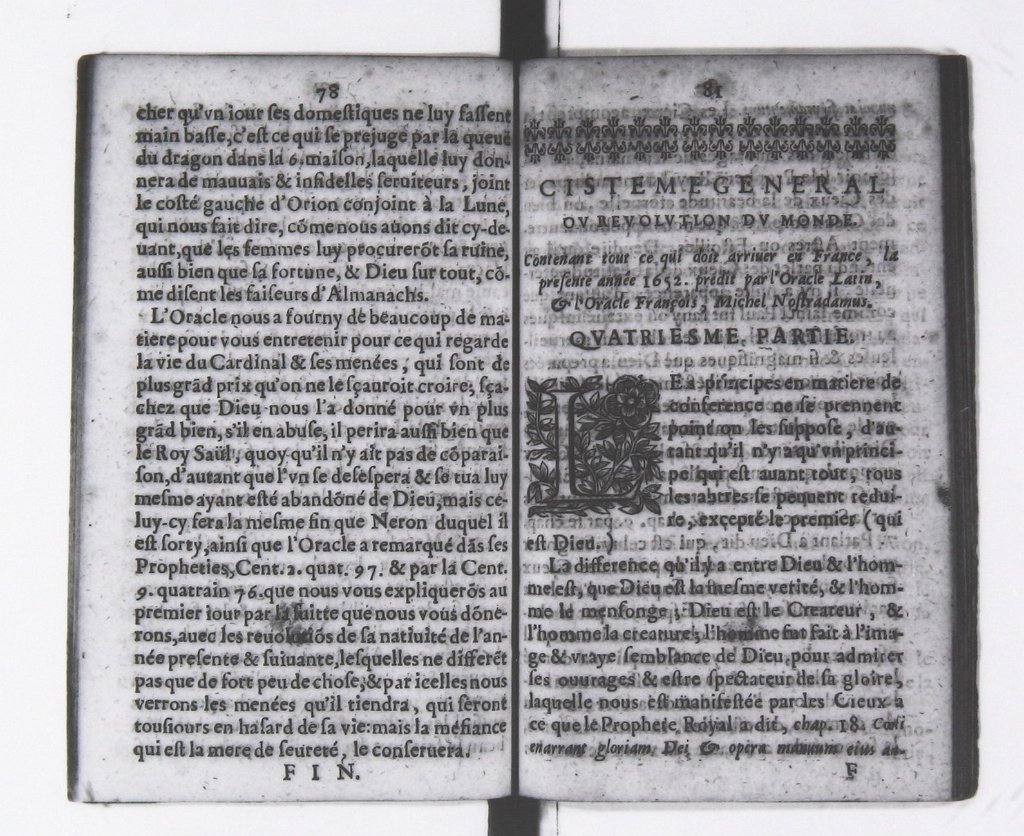 78
cher qu'vn iour ses domestiques ne luy fassent
main basse, c'est ce qui se prejuge par la queuë
du dragon dans la 6. maison, laquelle luy don-
nera de mauuais & infidelles seruiteurs, joint
le costé gauche d'Orion conjoint à la Lune,
qui nous fait dire, cōme nous auons dit cy-de-
uant, que les femmes luy procurerōt sa ruine,
aussi bien que sa fortune, & Dieu sur tout, cō-
me disent les faiseurs d'Almanachs.
L'Oracle nous a fourny de beaucoup de ma-
tiere pour vous entretenir pour ce qui regarde
la vie du Cardinal & ses menées, qui sont de
plus grād prix qu'on ne le sçauroit croire; sça-
chez que Dieu nous l'a donné pour vn plus
grād bien, s'il en abuse, il perira aussi bien que
le Roy Saül, quoy qu'il n'y ait pas de cōparai-
son, d'autant que l'vn se desespera & se tua luy
mesme ayant esté abandōné de Dieu, mais ce-
luy-cy sera la mesme fin que Neron duquel il
est sorty, ainsi que l'Oracle a remarqué dās ses
Propheties, Cent. 2. quat. 97. & par la Cent.
9. quatrain 76. que nous vous expliquerōs au
premier iour par la suitte que nous vous dōne-
rons, auec les reuolutiōs de sa natiuité de l'an-
née presente & suiuante, lesquelles ne differēt
pas que de fort peu de chose, & par icelles nous
verrons les menées qu'il tiendra, qui seront
tousiours en hasard de sa vie: mais la méfiance
qui est la mere de seureté, le conseruera.
FIN.
81
CISTEME GENERAL
OV REVOLVTION DV MONDE.
Contenant tout ce qui doit arriuer en France, la
presente année 1652. prédit par l'Oracle Latin,
& l'Oracle François, Michel Nostradamus.
QVATRIESME. PARTIE.
LEs principes en matiere de
conference ne se prennent
point on les suppose, d'au-
tant qu'il n'y a qu'vn princi-
pe qui est auant tout, tous
les abtres se peuuent rédui-
re, excepté le premier (qui
est Dieu.)
La difference qu'il y a entre Dieu & l'hom-
me est, que Dieu est la mesme verité, & l'hom-
me le mensonge; Dieu est le Createur, &
l'homme la creature; l'homme fut fait à l'ima-
ge & vraye semblance de Dieu, pour admirer
ses ouurages & estre spectateur de sa gloire,
laquelle nous est manifestée par les Cieux a
ce que le Prophete Royal a dit, chap. 18. Cœli
enarrant gloriam Dei & opera manuum eius an-
F